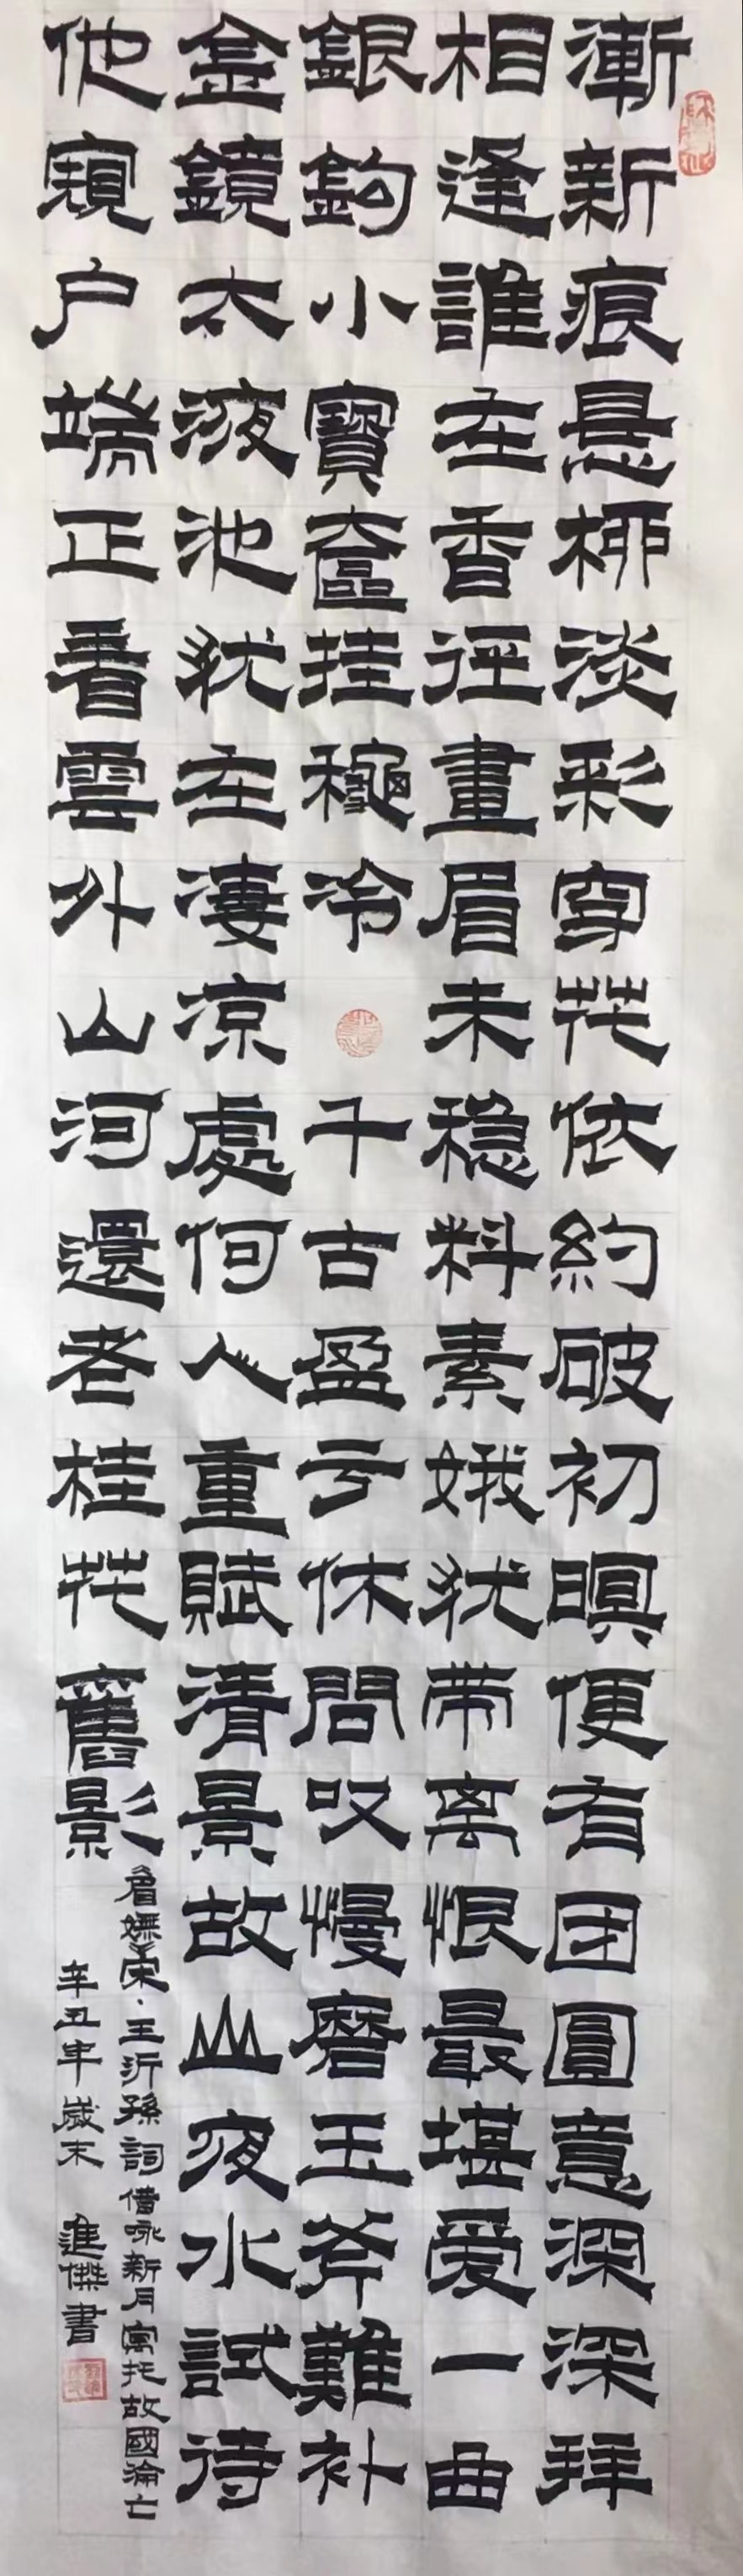 漸新痕悬柳淡彩穿花依約破初暝便有团圓意深深拜
相逢誰在香径畫眉未稳料素娥犹带离恨最堪爱一曲
銀鉤小寶奩挂龝冷 千古盈亏休問叹慢磨玉斧難补
金鏡太液池犹在凄凉處何人重賦清景故山夜水試待
他窺户端正看雲外山河還老桂花舊影
眉嫵宋·王沂孫詞借咏新月寓托故國淪亡
辛丑年歲末 進傑書